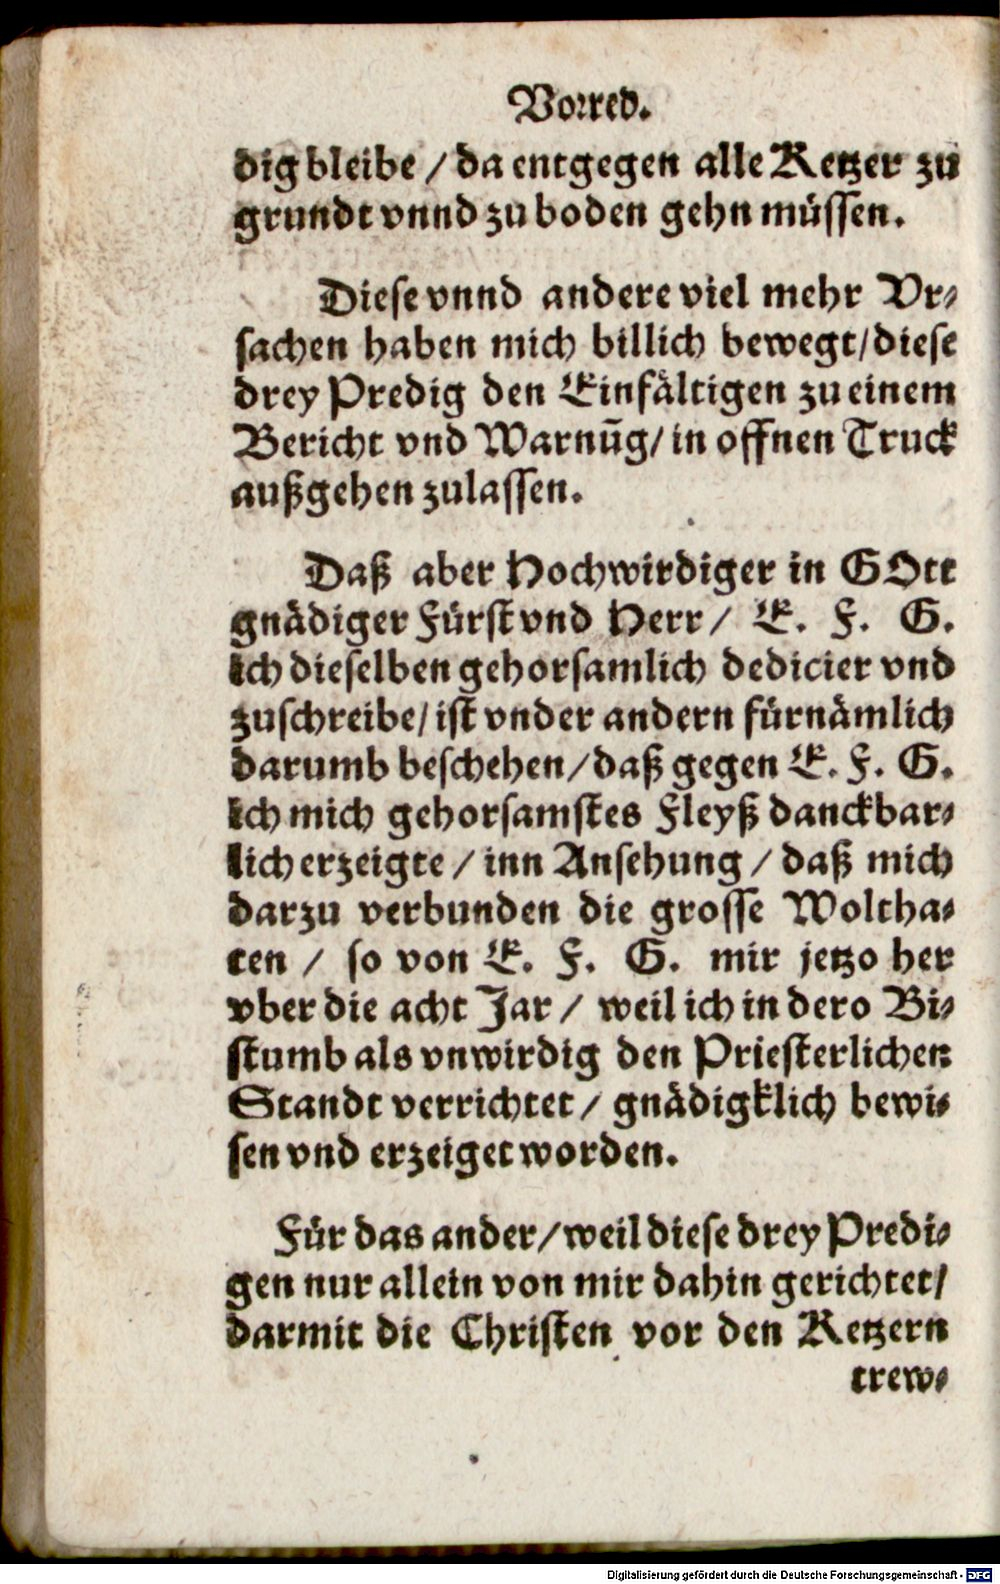 Vorred.
dig bleibe / da entgegen alle Ketzer zu
grundt vnnd zu boden gehn müssen.
Diese vnnd andere viel mehr Vr-
sachen haben mich billich bewegt/diese
drey Predig den Einfältigen zu einem
Bericht vnd Warnūg/ in offnen Truck
außgehen zulassen.
Daß aber Hochwirdiger in GOtt
gnädiger Fürst vnd Herr / E. F. G.
ich dieselben gehorsamlich dedicier vnd
zuschreibe/ ist vnder andern fürnämlich
darumb beschehen/daß gegen E. F. G.
ich mich gehorsamstes Fleyß danckbar-
lich erzeigte / inn Ansehung / daß mich
darzu verbunden die grosse Woltha-
ten / so von E. F. G. mir jetzo her
vber die acht Jar / weil ich in dero Bi-
stumb als vnwirdig den Priesterlichen
Standt verrichtet / gnädigklich bewi-
sen vnd erzeiget worden.
Für das ander/weil diese drey Predi-
gen nur allein von mir dahin gerichtet/
darmit die Christen vor den Ketzern
trew-
Digitalisierung gefördert durch die Deutsche Forschungsgemeinschaft - DFG